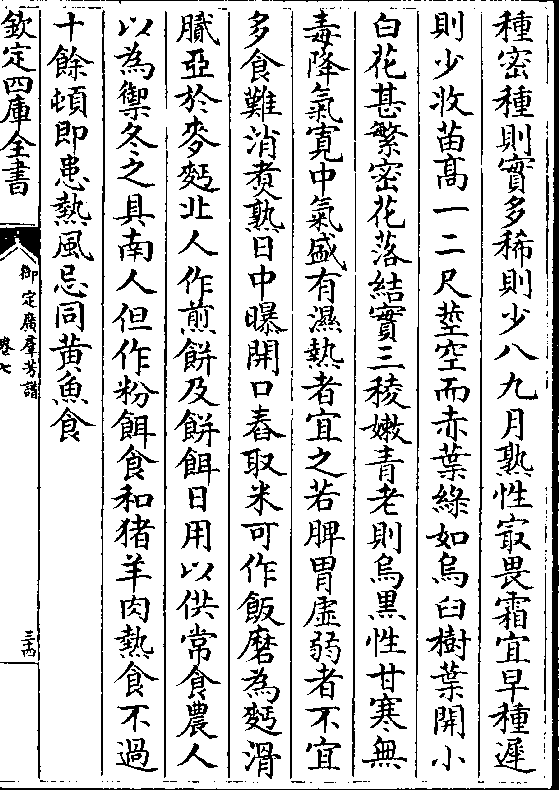 種密種則實多稀則少八九月熟性㝡畏霜宜早種遲
則少收苗高一二尺莖空而赤葉緑如烏臼樹葉開小
白花甚繁密花落結實三稜嫩青老則烏黑性甘寒無
毒降氣寛中氣盛有濕熱者宜之若脾胃虚弱者不宜
多食難消煑熟日中曝開口舂取米可作飯磨為麪滑
膩亞於麥麪北人作煎餅及餅餌日用以供常食農人
以為禦冬之具南人但作粉餌食和猪羊肉熱食不過
十餘頓即患熱風忌同黄魚食
欽定四庫全書
御定廣羣芳譜
卷七
三十四